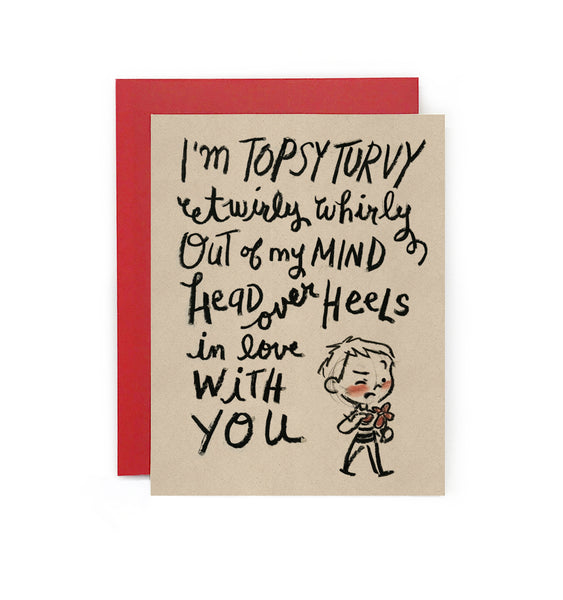 I'm TOPSY TURVY
twirly whirly
OUT of my MIND
HEAD over HEELS
in love
WITH
YOU